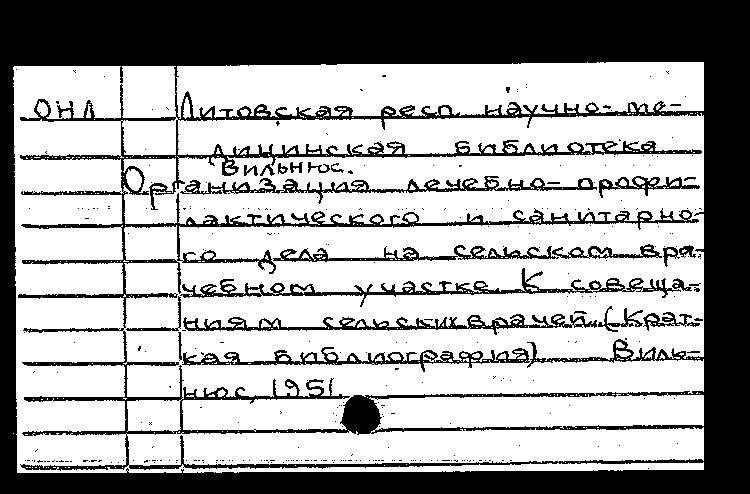 ОНЛ Литовская респ. научно-ме-
дицинская библиотека
Вильнюс.
Организация лечебно-профи-
лактического и санитарно-
го дела на сельском вра-
чебном участке. К совеща-
ниям сельских врачей. (Крат-
кая библиография) Виль-
нюс, 1951.